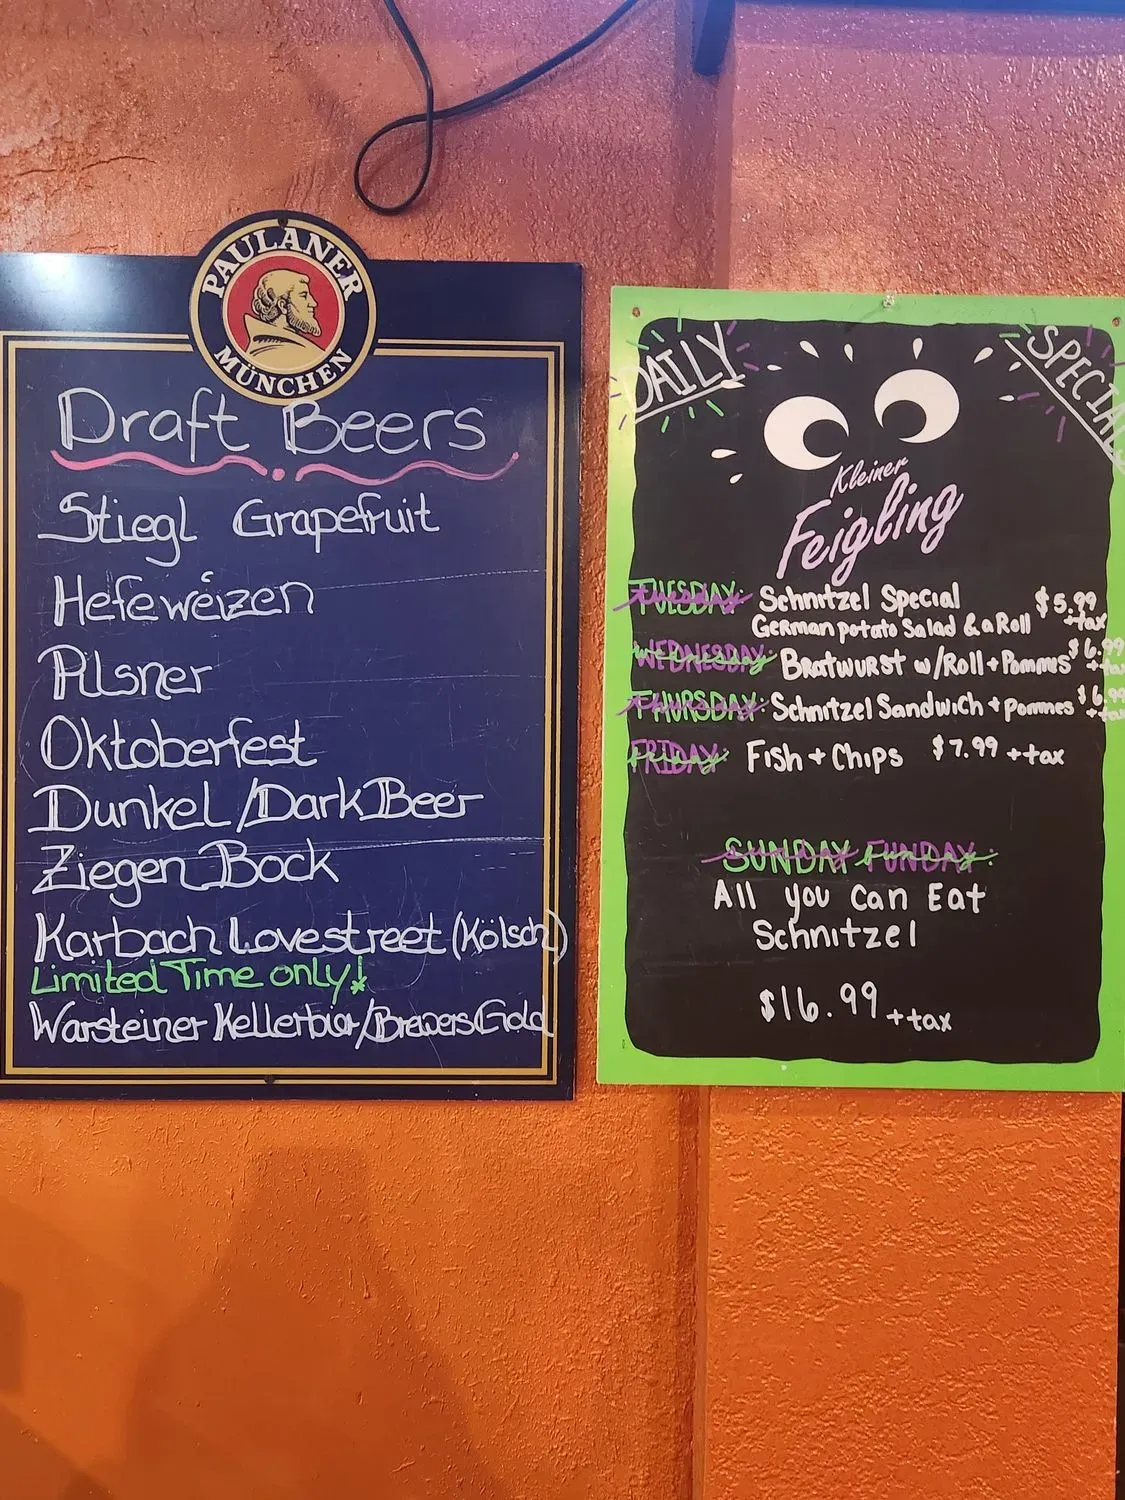 PAULANER
MÜNCHEN
Draft Beers
Stiegl Grapefruit
Hefeweizen
Pilsner
Oktoberfest
Dunkel/Dark Beer
Ziegen Bock
Karbach Lovestreet (Kölsch)
Limited Time only!
Warsteiner Kellerbier/Brewers Gold
DAILY SPECIAL
Kleiner
Feigling
TUESDAY: Schnitzel Special $5.99
German potato Salad & a Roll +tax
WEDNESDAY: Bratwurst w/Roll + Pommes $6.99 +tax
THURSDAY: Schnitzel Sandwich + pommes $6.99 +tax
FRIDAY: Fish + Chips $7.99 + tax
SUNDAY FUNDAY:
All you can Eat
Schnitzel
$16.99 + tax